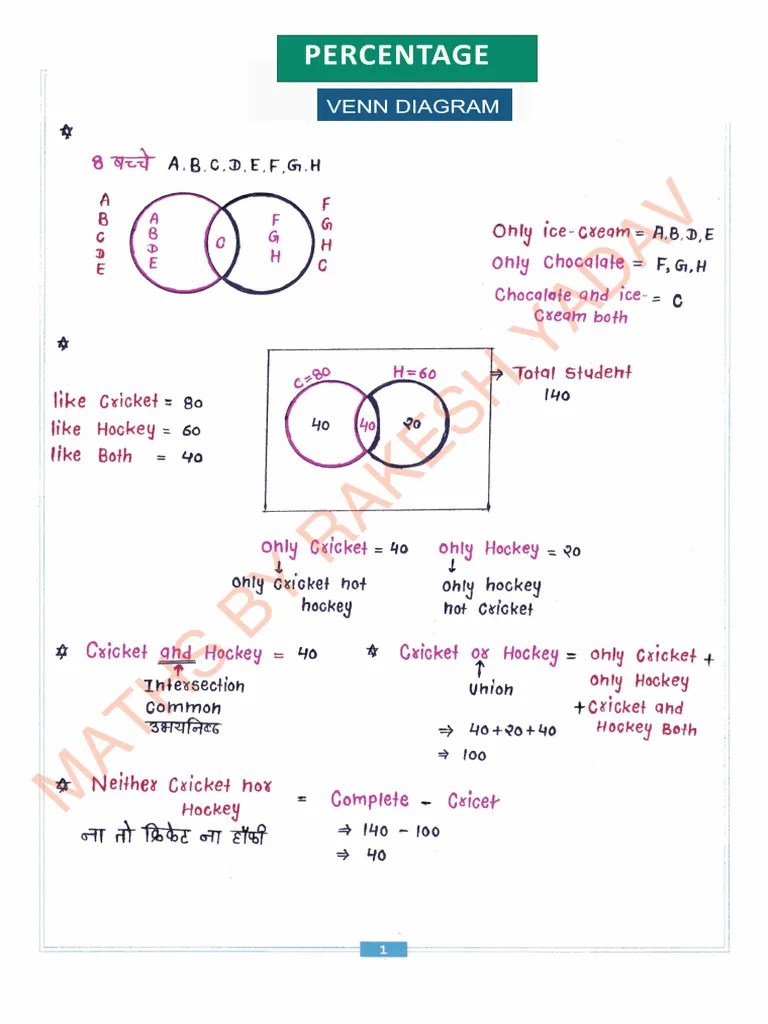 PERCENTAGE
VENN DIAGRAM
☆
8 बच्चे A, B, C, D, E, F, G, H
A
B
C
D
E
A
B
D
E
C
F
G
H
F
G
H
C
Only ice-cream = A, B, D, E
Only Chocalate = F, G, H
Chocalate and ice-
Cream both = C
☆
like Cricket = 80
like Hockey = 60
like Both = 40
C=80
H=60
40
40
20
⇒ Total student
140
only Cricket = 40
↓
only Cricket not
hockey
only Hockey = 20
↓
only hockey
not Cricket
☆ Cricket and Hockey = 40
↑
Intersection
Common
उभयनिष्ठ
☆ Cricket or Hockey = only Cricket +
only Hockey
+ Cricket and
Hockey Both
↑
union
⇒ 40+20+40
⇒ 100
☆ Neither Cricket nor
Hockey = Complete - Cricet
ना तो क्रिकेट ना हॉकी
⇒ 140 - 100
⇒ 40
MATHS BY RAKESH YADAV
1